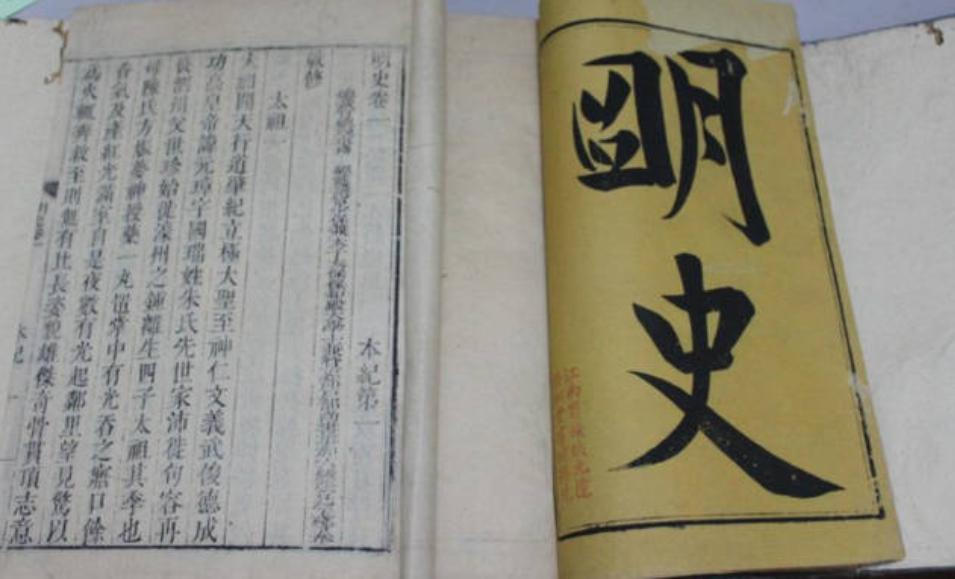 明史
明史卷一 本紀第一
敕修
太祖一
太祖開天行道肇紀立極大聖至神仁文義武俊德成
功高皇帝諱元璋字國瑞姓朱氏先世家沛徙句容再
徙泗州父世珍始徙濠州之鍾離生四子太祖其季也
母陳氏方娠夢神授藥一丸置掌中有光吞之寤口餘
香氣及產紅光滿室自是夜數有光起鄰里望見驚以
爲火輒奔救至則無有比長姿貌雄傑奇骨貫頂志意
本紀一